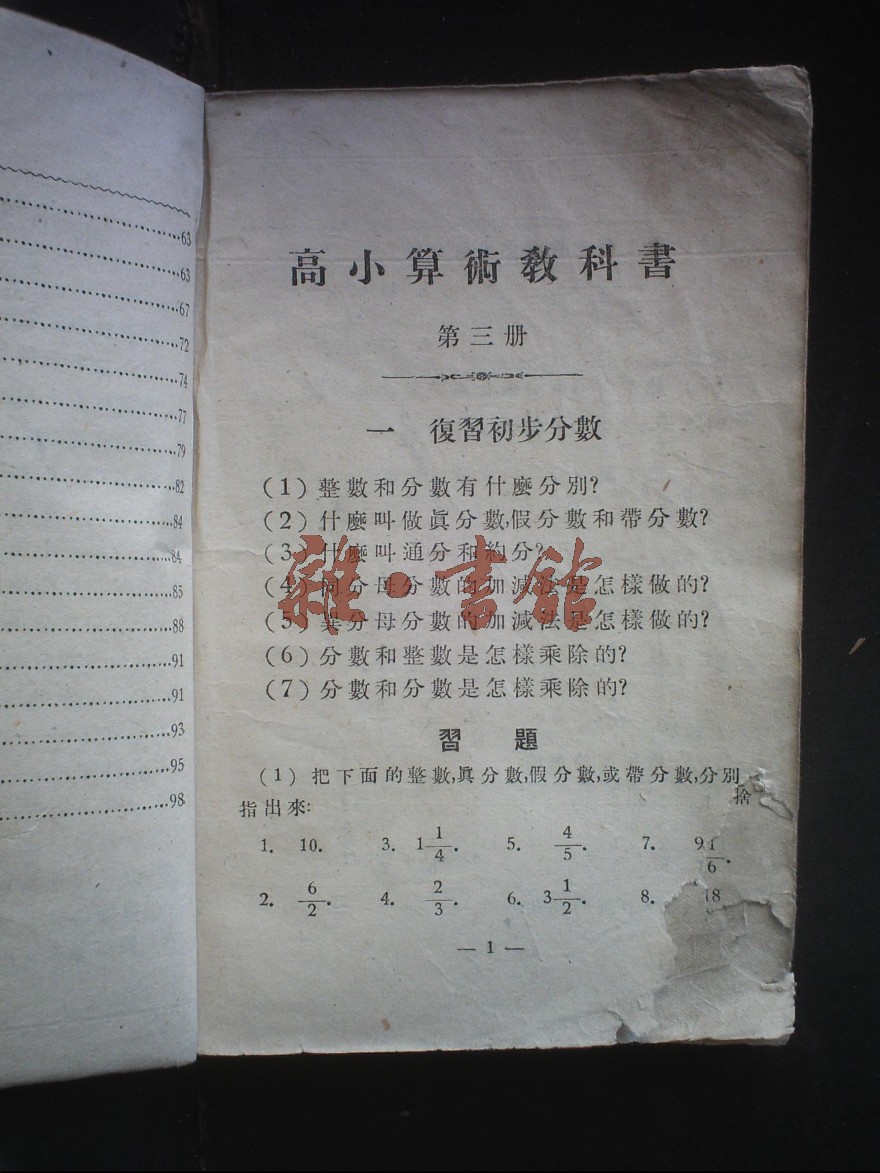 63
63
67
72
74
77
79
82
84
84
85
88
91
91
93
95
98
高小算術教科書
第三册
一 復習初步分數
(1)整數和分數有什麽分別?
(2)什麽叫做眞分數,假分數和帶分數?
(3)什麽叫通分和約分?
(4)同分母分數的加減法是怎樣做的?
(5)異分母分數的加減法是怎樣做的?
(6)分數和整數是怎樣乘除的?
(7)分數和分數是怎樣乘除的?
雜·書館
習題
(1)把下面的整數,眞分數,假分數,或帶分數,分別
指出來:
捨
1. 10. 3. 1 1/4. 5. 4/5. 7. 9 1/6.
2. 6/2. 4. 2/3. 6. 3 1/2. 8. 18
— 1 —